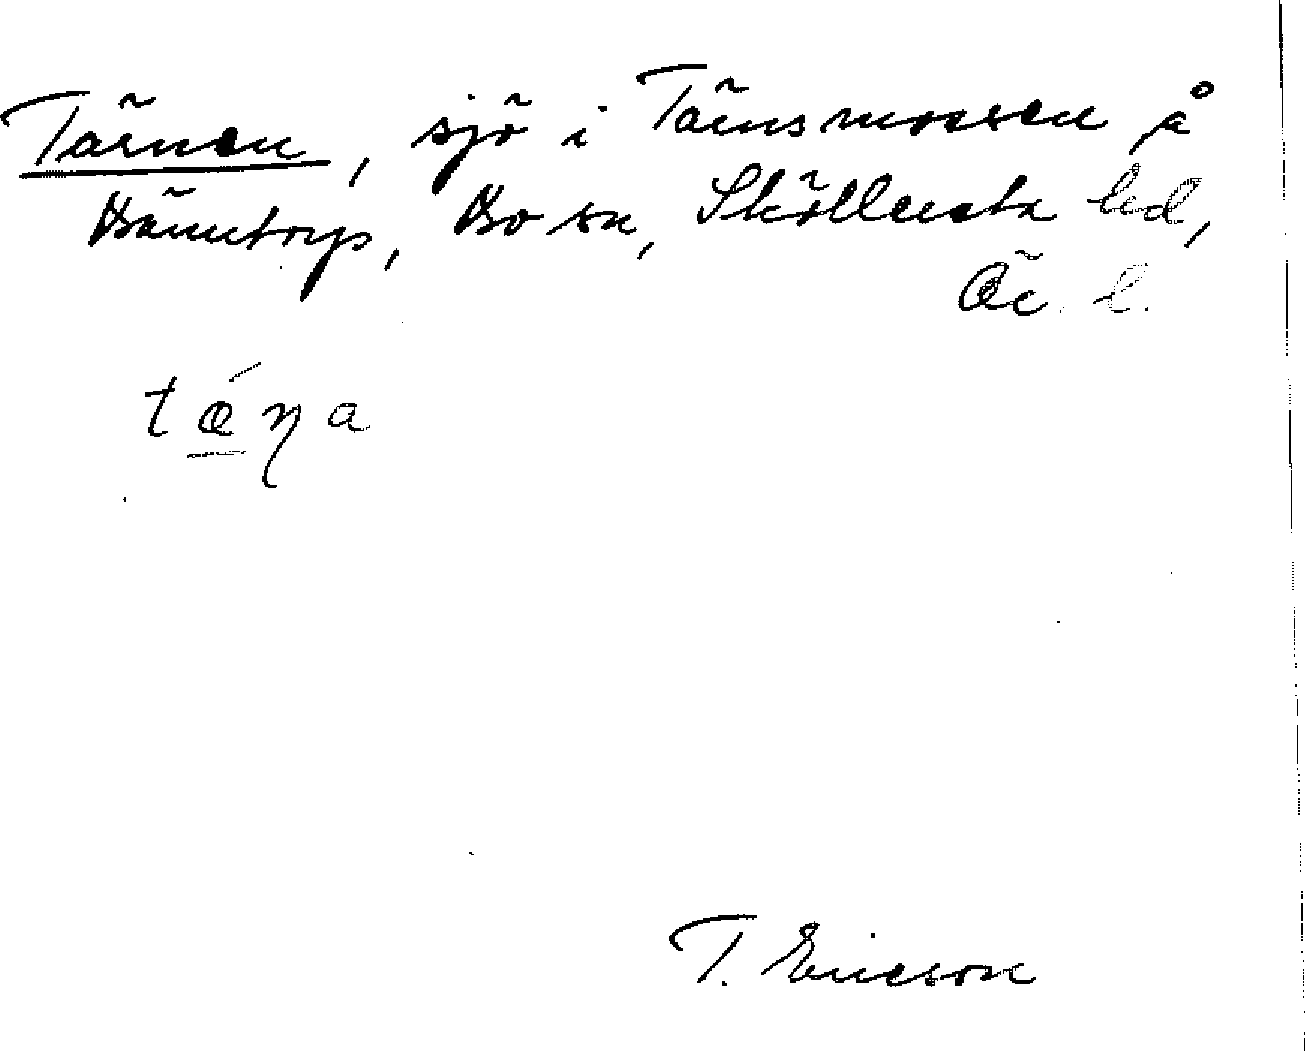 Tärnen, sjö i Tärnsmossen å
Hämtorp, Bo sn, Sköllersta hd,
Ör. l.
tǽṇa
T. Ericson